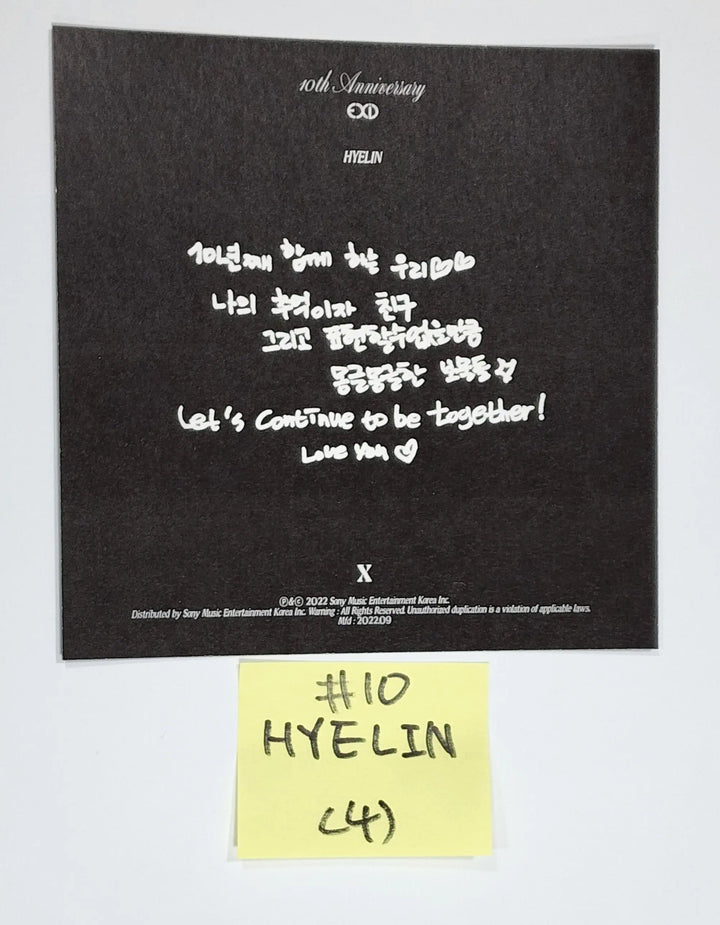 10th Anniversary
EXID
HYELIN
10년째 함께 하는 우리♡♡
나의 추억이자 친구
그리고 표현할수없을만큼
몽글몽글한 보물들☆
Let's continue to be together!
Love you ♡
X
℗&© 2022 Sony Music Entertainment Korea Inc.
Distributed by Sony Music Entertainment Korea Inc. Warning : All Rights Reserved. Unauthorized duplication is a violation of applicable laws.
Mfd : 2022.09
#10
HYELIN
(4)